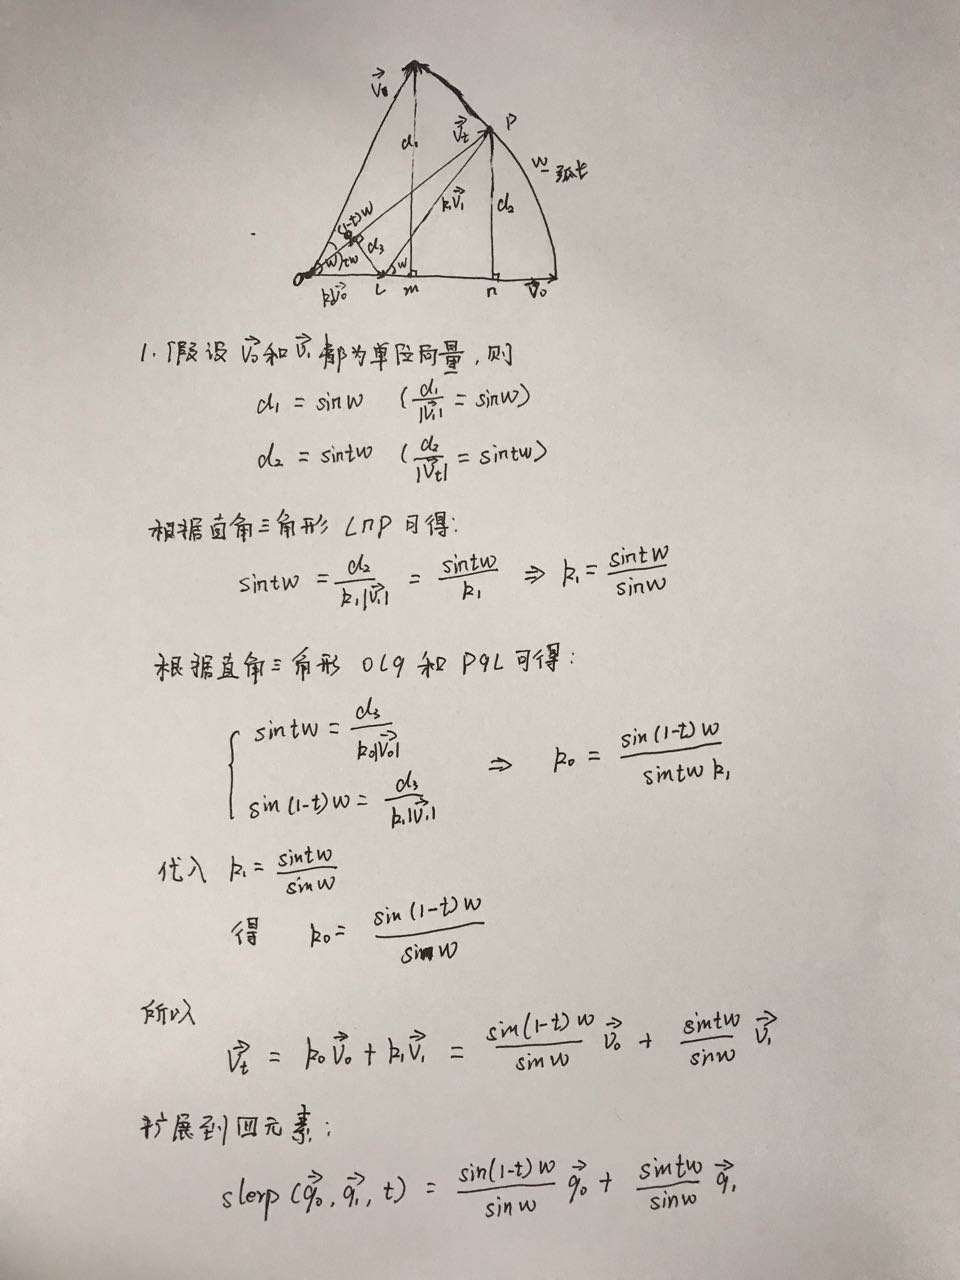 V⃗₁
P
V⃗t
d₁
w 弧长
k₁V⃗₁
d₂
(1-t)w
q
d₃
w
tw
w
O
k₀V⃗₀
L
m
n
V⃗₀
1. 假设 V⃗₀和V⃗₁都为单位向量,则
d₁ = sinw (d₁/|V⃗₁| = sinw)
d₂ = sintw (d₂/|V⃗t| = sintw)
根据直角三角形 LnP 可得:
sintw = d₂/k₁|V⃗₁| = sintw/k₁ ⇒ k₁ = sintw/sinw
根据直角三角形 OLq 和 PqL 可得:
sintw = d₃/k₀|V⃗₀|
⇒ k₀ = sin(1-t)w/sintw k₁
sin(1-t)w = d₃/k₁|V⃗₁|
代入 k₁ = sintw/sinw
得 k₀ = sin(1-t)w/sinw
所以
V⃗t = k₀V⃗₀ + k₁V⃗₁ = sin(1-t)w/sinw V⃗₀ + sintw/sinw V⃗₁
扩展到四元素:
slerp(q⃗₀, q⃗₁, t) = sin(1-t)w/sinw q⃗₀ + sintw/sinw q⃗₁